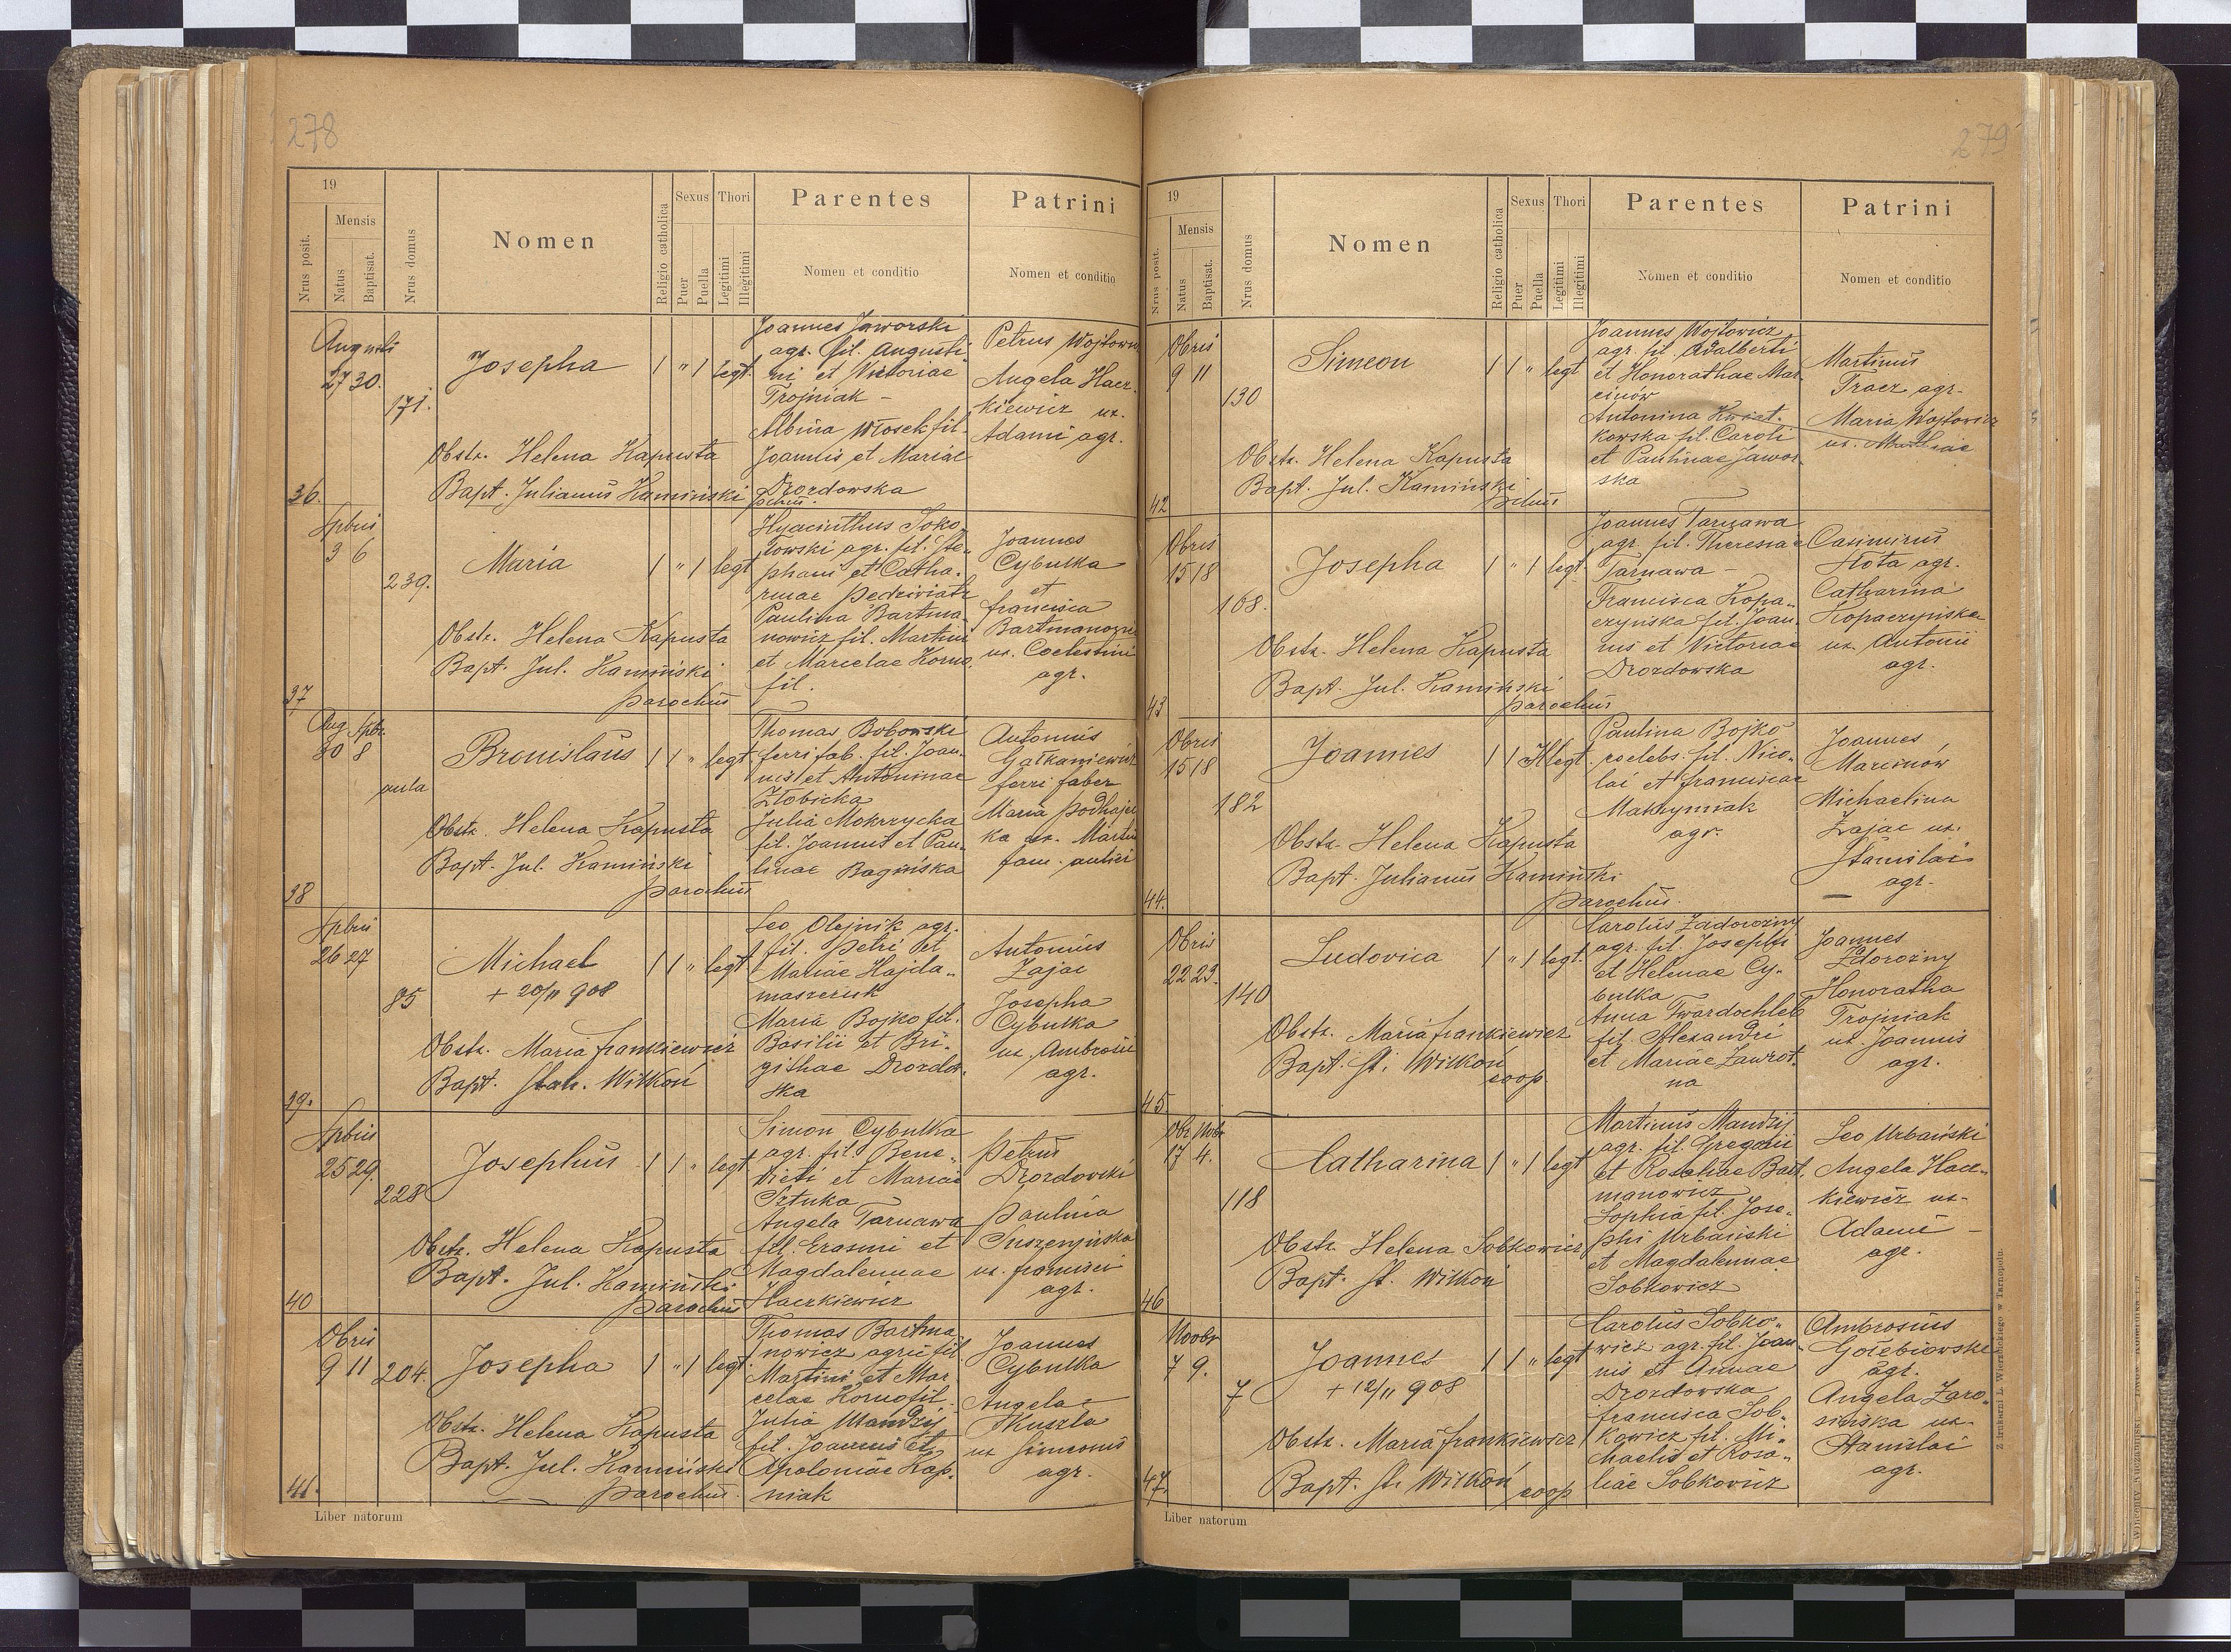 278
19
Nrus posit.
Mensis
Natus
Baptisat.
Nrus domus
Nomen
Religio catholica
Sexus
Puer
Puella
Thori
Legitimi
Illegitimi
Parentes
Nomen et conditio
Patrini
Nomen et conditio
36.
Augusti
27 30.
171.
Josepha
1 " 1 legt.
Obstr. Helena Kapusta
Bapt. Julianus Kamiński
parochus
Joannes Jaworski
agr. fil. Augusti
ni et Victoriae
Trojniak -
Albina Włosek fil.
Joannis et Mariae
Drozdowska
Petrus Wojtowicz
Angela Hacz
kiewicz ux.
Adami agr.
37
Spbris
3 6
239.
Maria
1 " 1 legt
Obstr. Helena Kapusta
Bapt. Jul. Kamiński
parochus
Hyacinthus Soko
łowski agr. fil. Ste„
phani et Catha„
rinae Pedziwiatr
Paulina Bartma
nowicz fil. Martini
et Marcelae Korno
fil.
Joannes
Cybulka
et
Francisca
Bartmanowicz
ux. Coelestini
agr.
38
Aug. Spbr.
30 8
aula
Bronislaus
1 1 " legt
Obstr. Helena Kapusta
Bapt. Jul. Kamiński
parochus
Thomas Bobowski
ferri fab. fil. Joan„
nis et Antoninae
Złobicka
Julia Mokrzycka
fil. Joannis et Pau„
linae Bagińska
Antonius
Gałkaniewicz
ferri faber
Maria Podhajec
ka ux. Martini
fam. aulici
39.
Spbris
26 27
85
Michael
+ 20/11 908
1 1 " legt
Obstr. Maria Frankiewicz
Bapt. Stan. Witkoń
Leo Olejnik agr.
fil. Petri et
Mariae Hajda„
maszczuk
Maria Bojko fil.
Basilii et Bri„
githae Drozdow„
ska
Antonius
Zajac
Josepha
Cybulka
ux. Ambrosii
agr.
40
Spbris
25 29.
228
Josephus
1 1 " legt
Obstr. Helena Kapusta
Bapt. Jul. Kamiński
parochus
Simon Cybulka
agr. fil. Bene„
dicti et Mariae
Sztuka
Angela Tarnawa
fil. Erasmi et
Magdalennae
Haczkiewicz
Petrus
Drozdowski
Paulina
Suszenjńska
ux. Francisci
agr.
41.
Obris
9 11
204.
Josepha
1 " 1 legt
Obstr. Helena Kapusta
Bapt. Jul. Kamiński
parochus
Thomas Bartma
nowicz agric fil
Martini et Mar
celae Kornofil
Julia Mandzij
fil. Joannis et
Apoloniae Kap„
niak
Joannes
Cybulka
Angela
Skuszla
ux Simeonis
agr.
Liber natorum
279
19
Nrus posit.
Mensis
Natus
Baptisat.
Nrus domus
Nomen
Religio catholica
Sexus
Puer
Puella
Thori
Legitimi
Illegitimi
Parentes
Nomen et conditio
Patrini
Nomen et conditio
42
Obris
9 11
130
Simeon
1 1 " legt
Obstr. Helena Kapusta
Bapt. Jul. Kamiński
Joannes Wojtowicz
agr. fil. Adalberti
et Honorathae Mar„
cinów
Antonina Kwiat„
kowska fil. Caroli
et Paulinae Jawor„
ska
Martinus
Tracz agr.
Maria Wojtowicz
ux. Mathiae
43
Obris
15 18
168.
Josepha
1 " 1 legt
Obstr. Helena Kapusta
Bapt. Jul. Kamiński
parochus
Joannes Tarnawa
agr. fil. Theresiae
Tarnawa -
Francisca Kopa„
czyńska fil. Joan„
nis et Victoriae
Drozdowska
Casimirus
Słota agr.
Catharina
Kopaczyńska
ux. Antonii
agr.
44.
Obris
15 18
182
Joannes
1 1 legt.
Obstr. Helena Kapusta
Bapt. Julianus Kamiński
parochus
Paulina Bojko
coelebs. fil. Nico„
lai et Franciscae
Makrymiak
agr.
Joannes
Marcinów
Michaelina
Zajac ux.
Stanislai
agr.
45
Obris
22 23.
140
Ludovica
1 " 1 legt.
Obstr. Maria Frankiewicz
Bapt. St. Witkoń
coop
Carolus Zadorożny
agr. fil. Josephi
et Helenae Cy„
bulka
Anna Twardochleb
fil. Alexandri
et Mariae Zawrot„
na
Joannes
Zadorożny
Honoratha
Trojniak
ux. Joannis
agr.
46
Obr. Nobr
17 4.
118
Catharina
1 " 1 legt
Obstr. Helena Sobkowicz
Bapt. St. Witkoń
Martinus Mandzij
agr. fil. Gregorii
et Rosaliae Bart„
manowicz
Sophia fil. Jose„
phi Urbański
et Magdalennae
Sobkowicz
Leo Urbański
Angela Hacz„
kiewicz ux.
Adami -
agr.
47.
Novbr
7 9.
7
Joannes
+ 12/11 908
1 1 " legt
Obstr. Maria Frankiewicz
Bapt. St. Witkoń
coop
Carolus Sobko„
wicz agr. fil. Joan„
nis et Annae
Drozdowska
Francisca Sob„
kowicz fil. Mi„
chaelis et Rosa„
liae Sobkowicz
Ambrosius
Gołębiowski
agr.
Angela Zaro„
sińska ux.
Stanislai
agr.
Liber natorum
Z drukarni L. Wierzbickiego w Tarnopolu.